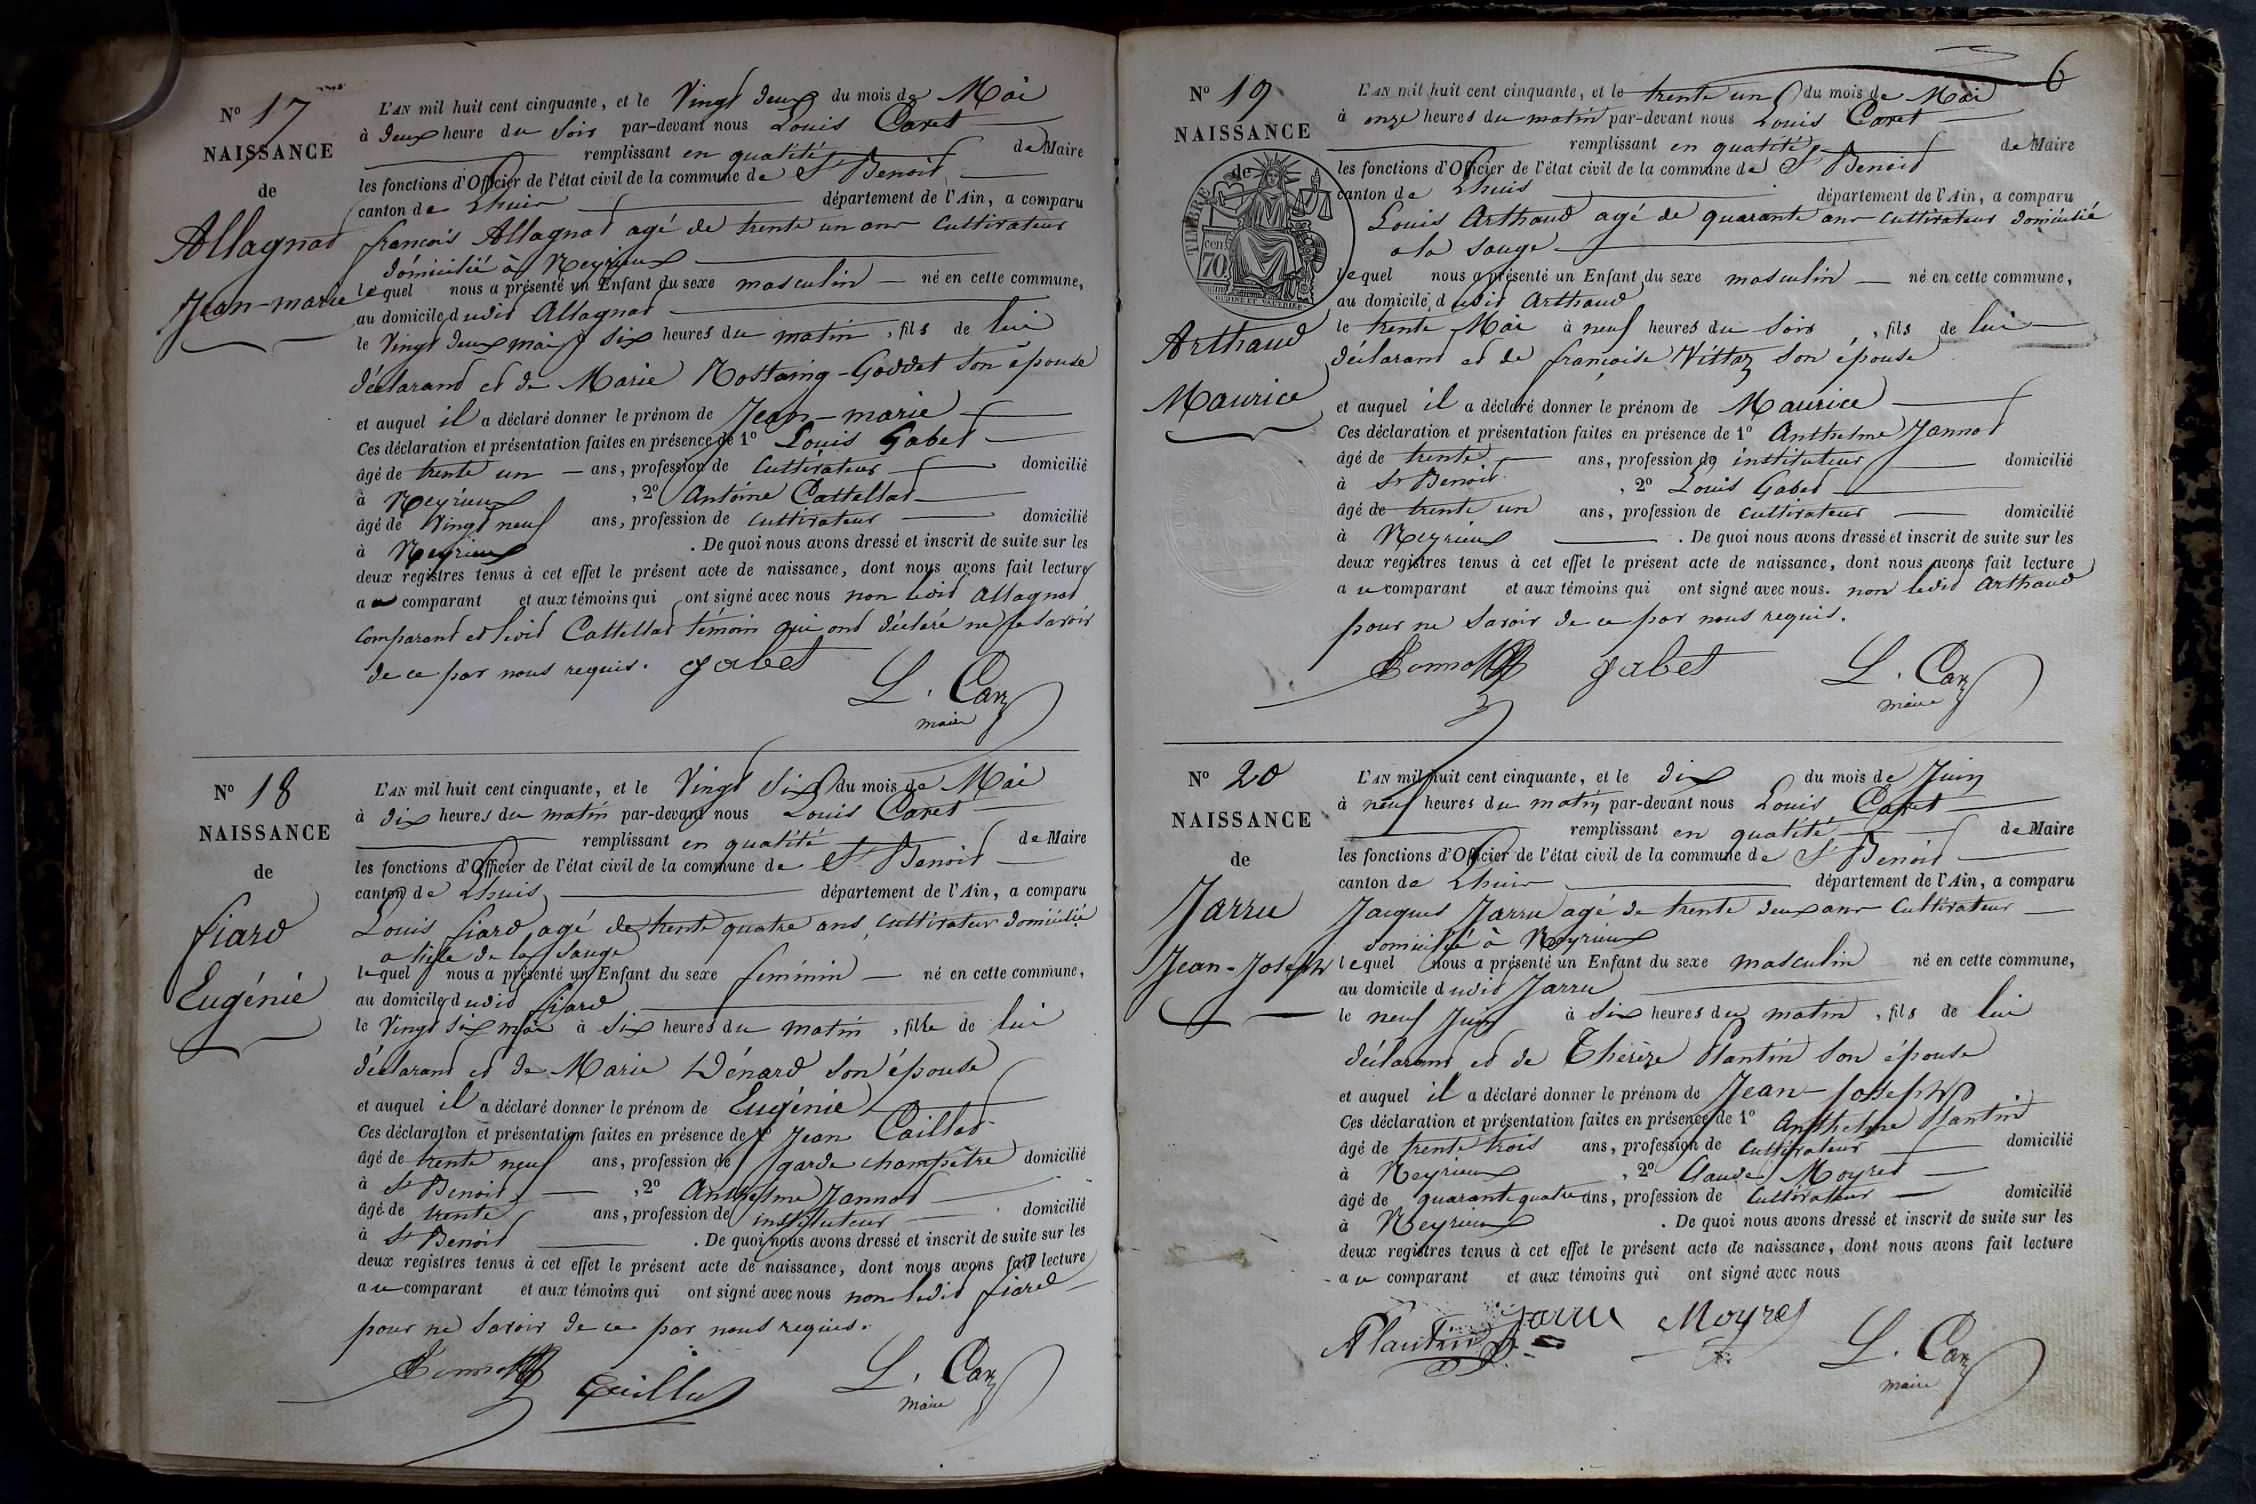 Nº 17
NAISSANCE
de
Allagnat
Jean-marie
L'AN mil huit cent cinquante, et le Vingt deux du mois de Mai
à deux heure du soir par-devant nous Louis Caret
remplissant en qualité de Maire
les fonctions d'Officier de l'état civil de la commune de St Benoit
canton de Lhuis département de l'Ain, a comparu
françois Allagnat agé de trente un ans cultivateur
domicilié à Neyrieux
lequel nous a présenté un Enfant du sexe masculin né en cette commune,
au domicile dudit Allagnat
le Vingt deux mai à six heures du matin, fils de lui
déclarant et de Marie Rostaing-Goddet son épouse
et auquel il a déclaré donner le prénom de Jean-marie
Ces déclaration et présentation faites en présence de 1º Louis Gabet
âgé de trente un ans, profession de cultivateur domicilié
à Neyrieux, 2º Antoine Cattellat
âgé de Vingt neuf ans, profession de cultivateur domicilié
à Neyrieux. De quoi nous avons dressé et inscrit de suite sur les
deux registres tenus à cet effet le présent acte de naissance, dont nous avons fait lecture
au comparant et aux témoins qui ont signé avec nous non ledit Allagnat
comparant et ledit Cattellat témoin qui ont déclaré ne le savoir
de ce par nous requis. gabet
L. Car
maire
Nº 18
NAISSANCE
de
fiard
Eugénie
L'AN mil huit cent cinquante, et le Vingt six du mois de Mai
à dix heures du matin par-devant nous Louis Caret
remplissant en qualité de Maire
les fonctions d'Officier de l'état civil de la commune de St Benoit
canton de Lhuis département de l'Ain, a comparu
Louis fiard agé de trente quatre ans, cultivateur domicilié
a l'isle de la sauge
lequel nous a présenté un Enfant du sexe feminin né en cette commune,
au domicile dudit fiard
le Vingt six mai à six heures du matin, fille de lui
déclarant et de Marie Dénard son épouse
et auquel il a déclaré donner le prénom de Eugénie
Ces déclaration et présentation faites en présence de 1º Jean Caillat
âgé de trente neuf ans, profession de garde champêtre domicilié
à St Benoit, 2º Anthelme Jannot
âgé de trente ans, profession de instituteur domicilié
à St Benoit. De quoi nous avons dressé et inscrit de suite sur les
deux registres tenus à cet effet le présent acte de naissance, dont nous avons fait lecture
au comparant et aux témoins qui ont signé avec nous non ledit fiard
pour ne savoir de ce par nous requis.
L. Car
maire
6
Nº 19
NAISSANCE
de
TIMBRE
70 cen
Arthaud
Maurice
L'AN mil huit cent cinquante, et le trente un du mois de Mai
à onze heures du matin par-devant nous Louis Caret
remplissant en qualité de Maire
les fonctions d'Officier de l'état civil de la commune de St Benoit
canton de Lhuis département de l'Ain, a comparu
Louis Arthaud agé de quarante ans cultivateur domicilié
a la sauge
lequel nous a présenté un Enfant du sexe masculin né en cette commune,
au domicile dudit Arthaud
le trente Mai à neuf heures du soir, fils de lui
déclarant et de françoise Vittoz son épouse
et auquel il a déclaré donner le prénom de Maurice
Ces déclaration et présentation faites en présence de 1º Anthelme Jannot
âgé de trente ans, profession de instituteur domicilié
à St Benoit, 2º Louis Gabet
âgé de trente un ans, profession de cultivateur domicilié
à Neyrieux. De quoi nous avons dressé et inscrit de suite sur les
deux registres tenus à cet effet le présent acte de naissance, dont nous avons fait lecture
au comparant et aux témoins qui ont signé avec nous. non ledit Arthaud
pour ne savoir de ce par nous requis.
gabet L. Car
maire
Nº 20
NAISSANCE
de
Jarru
Jean-Joseph
L'AN mil huit cent cinquante, et le dix du mois de Juin
à neuf heures du matin par-devant nous Louis Caret
remplissant en qualité de Maire
les fonctions d'Officier de l'état civil de la commune de St Benoit
canton de Lhuis département de l'Ain, a comparu
Jacques Jarru agé de trente deux ans cultivateur
domicilié à Neyrieux
lequel nous a présenté un Enfant du sexe masculin né en cette commune,
au domicile dudit Jarru
le neuf Juin à six heures du matin, fils de lui
déclarant et de Thérèze Plantin son épouse
et auquel il a déclaré donner le prénom de Jean-Joseph
Ces déclaration et présentation faites en présence de 1º Anthelme Plantin
âgé de trente trois ans, profession de cultivateur domicilié
à Neyrieux, 2º Claude Moyret
âgé de quarante quatre ans, profession de cultivateur domicilié
à Neyrieux. De quoi nous avons dressé et inscrit de suite sur les
deux registres tenus à cet effet le présent acte de naissance, dont nous avons fait lecture
au comparant et aux témoins qui ont signé avec nous
Plantin Jarru Moyret
L. Car
maire